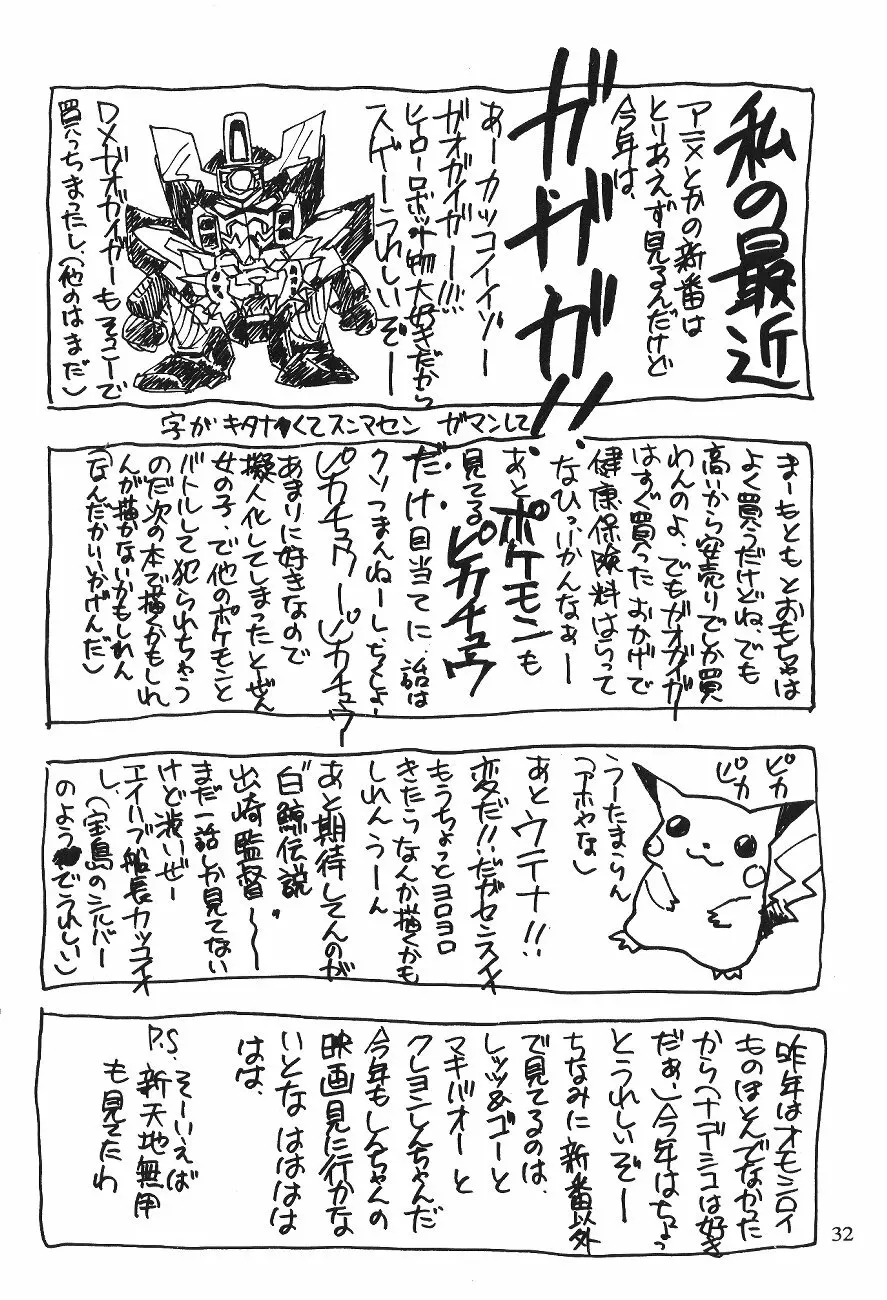 私の最近
アニメとかの新番は
とりあえず見るんだけど
今年は、
ガガガ!!
あーカッコイイゾー
ガオガイガー!!!
ヒーローロボット物大好きだから
スゲーうれしいぞー
DXガオガイガーもソッコーで
買っちまったし、(他のはまだ)
字がキタナくてスンマセン ガマンして
まーもともとおもちゃは
よく買うだけどね、でも
高いから安売りでしか買
わんのよ、でもガオガイガー
はすぐ買ったおかげで
健康保険料はらって
なひっ、いかんなぁー
あとポケモンも
見てるピカチュウ
だけ目当てに、話は
クソつまんねーし、ちくしょー
ピカチュウーピカチュウー
あまりに好きなので
擬人化してしまったとーぜん
女の子、で他のポケモンと
バトルして犯られちゃう
のだ次の本で描くかもしれ
んが描かないかもしれん
(なんだかいいかげんだ)
ピカ
ピカ
うーたまらん
(アホやな)
あとウテナ!!
変だ!!だがセンスイイ
もうちょっとヨロヨロ
きたらなんか描くかも
しれん うーん
あと期待してんのが
"白鯨伝説"
出崎監督~~
まだ一話しか見てない
けど渋いぜー
エイハブ船長カッコイイ
し、(宝島のシルバー
のようでうれしい)
昨年はオモシロイ
ものほとんでなかった
から(ナデシコは好き
だぁー)今年はちょっ
とうれしいぞー
ちなみに新番以外
で見てるのは、
レッツ&ゴーと
マキバオーと
クレヨンしんちゃんだ
今年もしんちゃんの
映画見に行かな
いとな はははは
はは、
P.S. そーいえば
新天地無用
も見てたわ
32